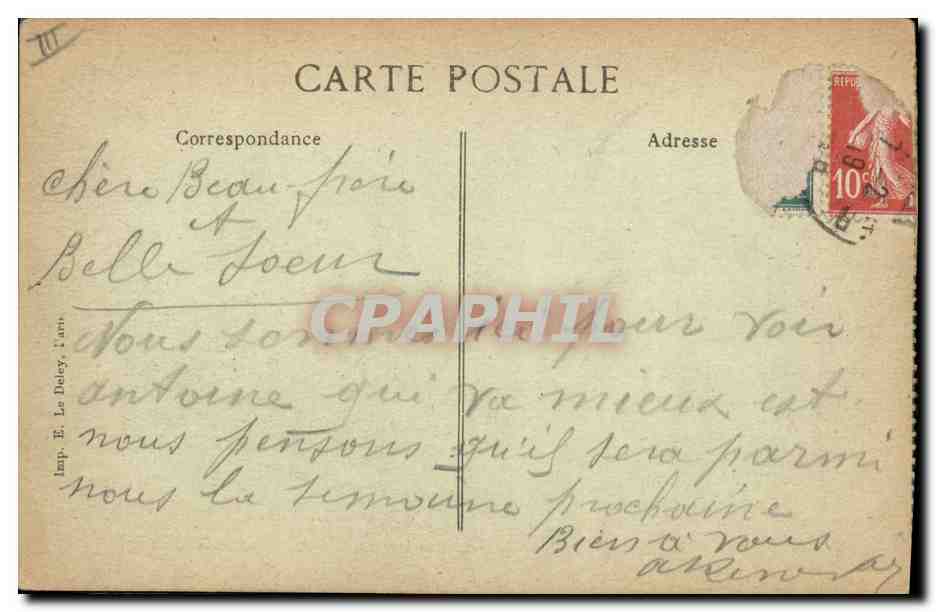 III
CARTE POSTALE
Correspondance
Adresse
REPU
10c
chère Beau-frère
et
Belle Soeur
CPARPHIL
Nous sommes ici pour voir
antoine qui va mieux est
nous pensons qu'il sera parmi
nous la semoine prochaine
Bien à vous
Imp. E. Le Deley, Paris